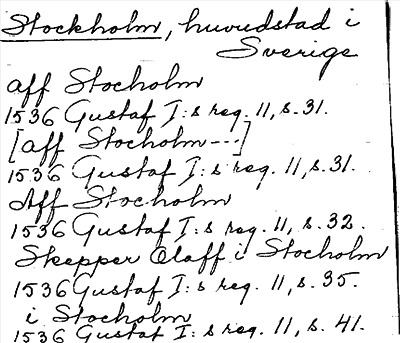 Stockholm, huvudstad i
Sverige
aff Stocholm
1536 Gustaf I:s reg. 11, s. 31.
[aff Stocholm---]
1536 Gustaf I:s reg. 11, s. 31.
Aff Stocholm
1536 Gustaf I:s reg. 11, s. 32.
Skepper Olaff i Stocholm
1536 Gustaf I:s reg. 11, s. 35.
i Stocholm
1536 Gustaf I:s reg. 11, s. 41.